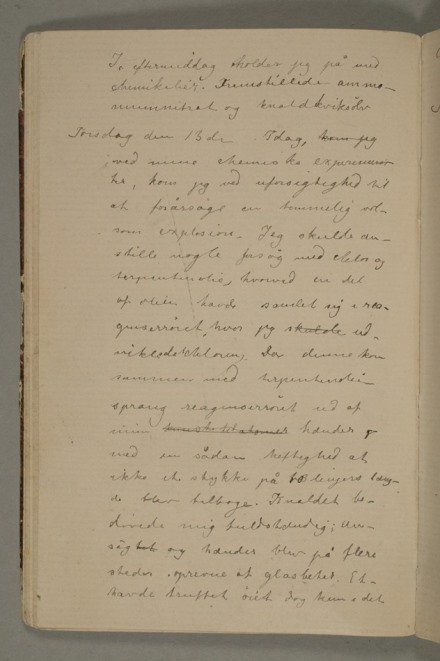 I eftermiddag holder jeg på med
chemikalier. Fremstillede ammo-
niumnitrat og knaldkviksølv
Torsdag den 13de. Idag, kom jeg
ved mine chemiske experimen-
ter, kom jeg ved uforsigtighed til
at forårsage en temmelig vold-
som explosion. Jeg skulde an-
stille nogle forsøg med chlor og
terpentinolie, hvorved en del
af olien havde samlet sig i rea-
gensrøret, hvor jeg skulde ud-
viklede chloren. Da denne kom
sammen med terpentinolien
sprang reagensrøret ud af
mine hænder
med en sådan heftighed at
ikke et stykke på længde
blev tilbage. Knaldet be-
døvede mig fuldstændig; An-
sigt og hænder blev på flere
steder oprevne af glasset. Et
havde truffet øiet dog kun i det